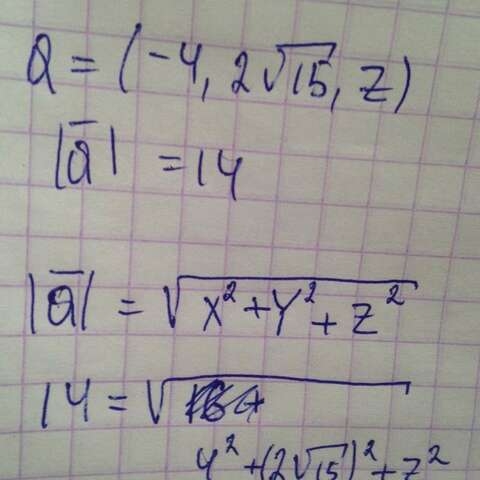 a = (-4, 2√15, z)
|a̅| = 14
|a̅| = √x² + y² + z²
14 = √
4² + (2√15)² + z²